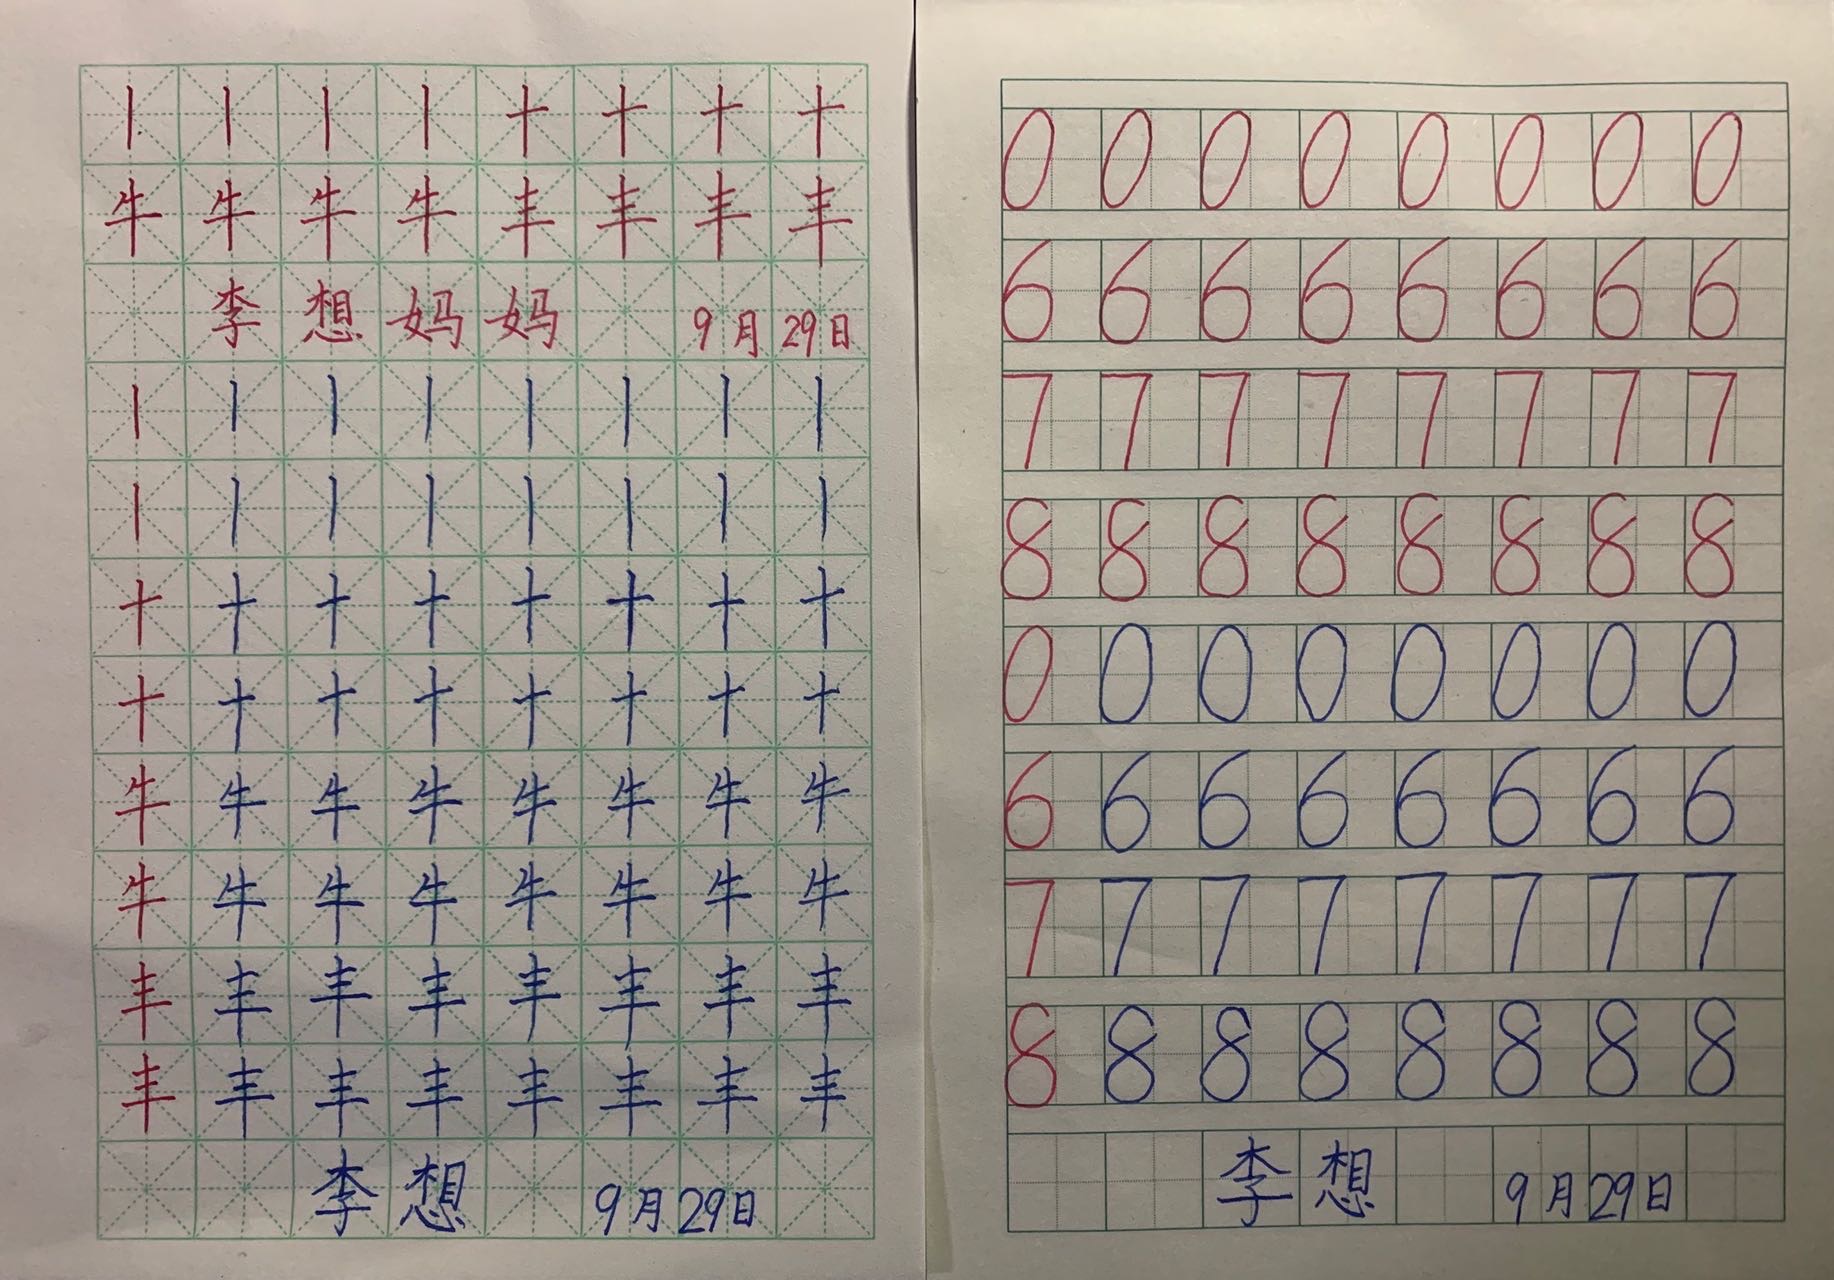 丨 丨 丨 丨 十 十 十 十
牛 牛 牛 牛 丰 丰 丰 丰
李 想 妈 妈 9月 29日
丨 丨 丨 丨 丨 丨 丨 丨
丨 丨 丨 丨 丨 丨 丨 丨
十 十 十 十 十 十 十 十
十 十 十 十 十 十 十 十
牛 牛 牛 牛 牛 牛 牛 牛
牛 牛 牛 牛 牛 牛 牛 牛
丰 丰 丰 丰 丰 丰 丰 丰
丰 丰 丰 丰 丰 丰 丰 丰
李 想 9月29日
0 0 0 0 0 0 0 0
6 6 6 6 6 6 6 6
7 7 7 7 7 7 7 7
8 8 8 8 8 8 8 8
0 0 0 0 0 0 0 0
6 6 6 6 6 6 6 6
7 7 7 7 7 7 7 7
8 8 8 8 8 8 8 8
李 想 9月29日